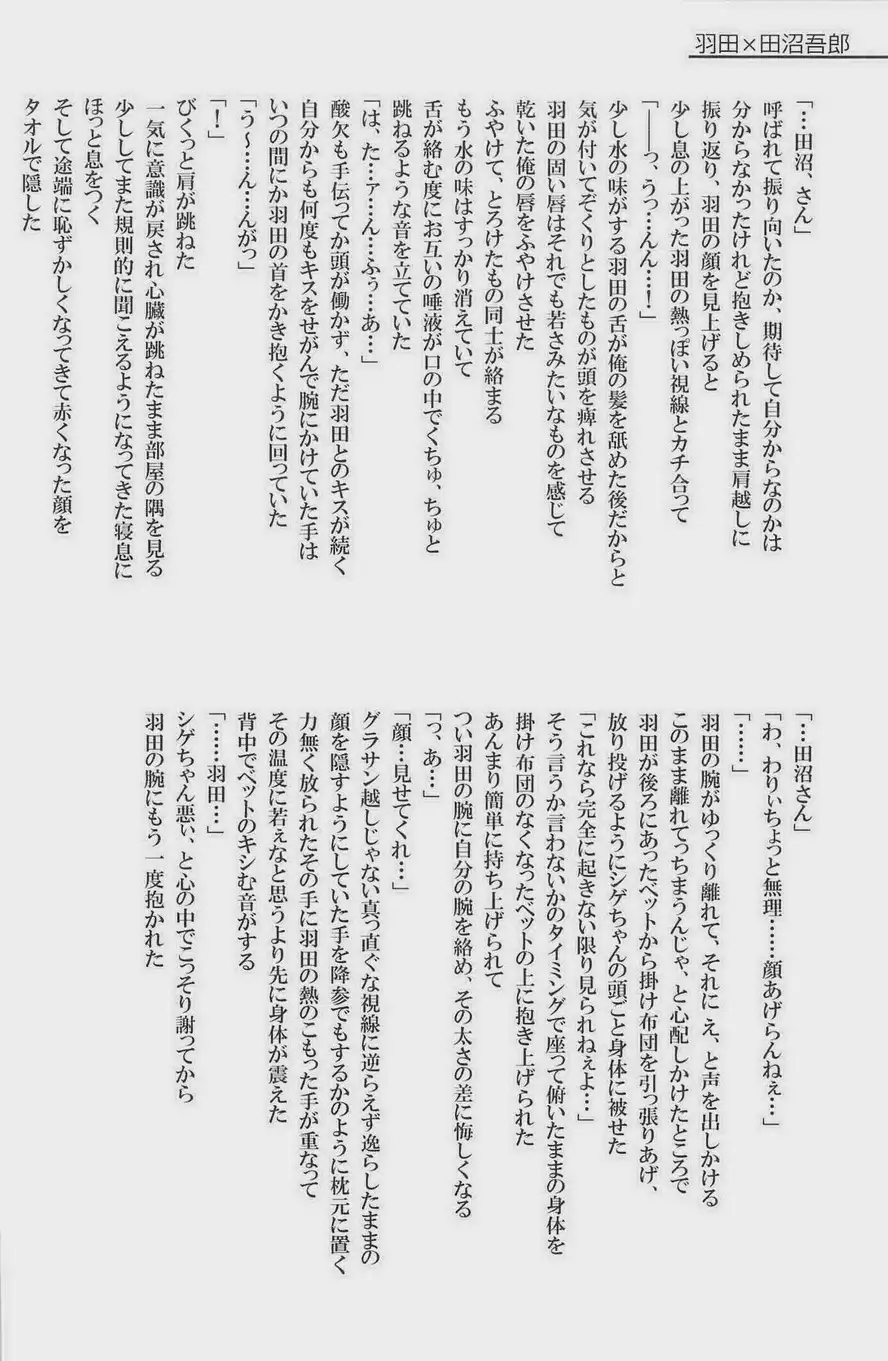 羽田×田沼吾郎
「…田沼、さん」
呼ばれて振り向いたのか、期待して自分からなのかは
分からなかったけれど抱きしめられたまま肩越しに
振り返り、羽田の顔を見上げると
少し息の上がった羽田の熱っぽい視線とカチ合って
「――っ、うっ…んん…！」
少し水の味がする羽田の舌が俺の髪を舐めた後だからと
気が付いてぞくりとしたものが頭を痺れさせる
羽田の固い唇はそれでも若さみたいなものを感じて
乾いた俺の唇をふやけさせた
ふやけて、とろけたもの同士が絡まる
もう水の味はすっかり消えていて
舌が絡む度にお互いの唾液が口の中でくちゅ、ちゅと
跳ねるような音を立てていた
「は、た…ァ…ん…ふぅ…あ…」
酸欠も手伝ってか頭が働かず、ただ羽田とのキスが続く
自分からも何度もキスをせがんで腕にかけていた手は
いつの間にか羽田の首をかき抱くように回っていた
「う～…ん…んがっ」
「！」
びくっと肩が跳ねた
一気に意識が戻され心臓が跳ねたまま部屋の隅を見る
少ししてまた規則的に聞こえるようになってきた寝息に
ほっと息をつく
そして途端に恥ずかしくなってきて赤くなった顔を
タオルで隠した
「…田沼さん」
「わ、わりぃちょっと無理……顔あげらんねぇ…」
「……」
羽田の腕がゆっくり離れて、それに え、と声を出しかける
このまま離れてっちまうんじゃ、と心配しかけたところで
羽田が後ろにあったベットから掛け布団を引っ張りあげ、
放り投げるようにシゲちゃんの頭ごと身体に被せた
「これなら完全に起きない限り見られねぇよ…」
そう言うか言わないかのタイミングで座って俯いたままの身体を
掛け布団のなくなったベットの上に抱き上げられた
あんまり簡単に持ち上げられて
つい羽田の腕に自分の腕を絡め、その太さの差に悔しくなる
「っ、あ…」
「顔…見せてくれ…」
グラサン越しじゃない真っ直ぐな視線に逆らえず逸らしたままの
顔を隠すようにしていた手を降参でもするかのように枕元に置く
力無く放られたその手に羽田の熱のこもった手が重なって
その温度に若ぇなと思うより先に身体が震えた
背中でベットのキシむ音がする
「……羽田…」
シゲちゃん悪ぃ、と心の中でこっそり謝ってから
羽田の腕にもう一度抱かれた